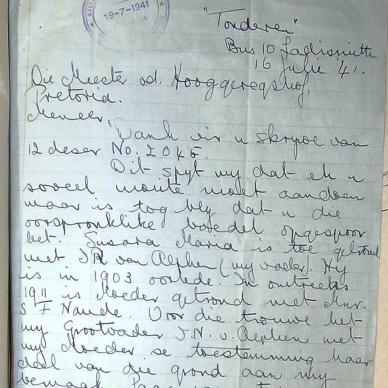 19-7-1941
"Tonderen"
Bus 10 Ladismitte
16 Julie '41.
Die Meester v.d. Hooggeregshof,
Pretoria.
Meneer,
Dank vir u skrywe van
12 deser No. 2045.
Dit spyt my dat ek u
soveel moeite moet aandoen
maar is tog bly dat u die
oorspronklike boedel opgespoor
het. Susara Maria is toe getroud
met J.N. van Alphen (my vader). Hy
is in 1903 oorlede. In omtreeks
1911 is Moeder getroud met Mnr.
S F Naude. Voor die trouwe het
my Grootvader J.N. v. Alphen met
my Moeder se toestemming haar
deel van die grond aan my
bemaak